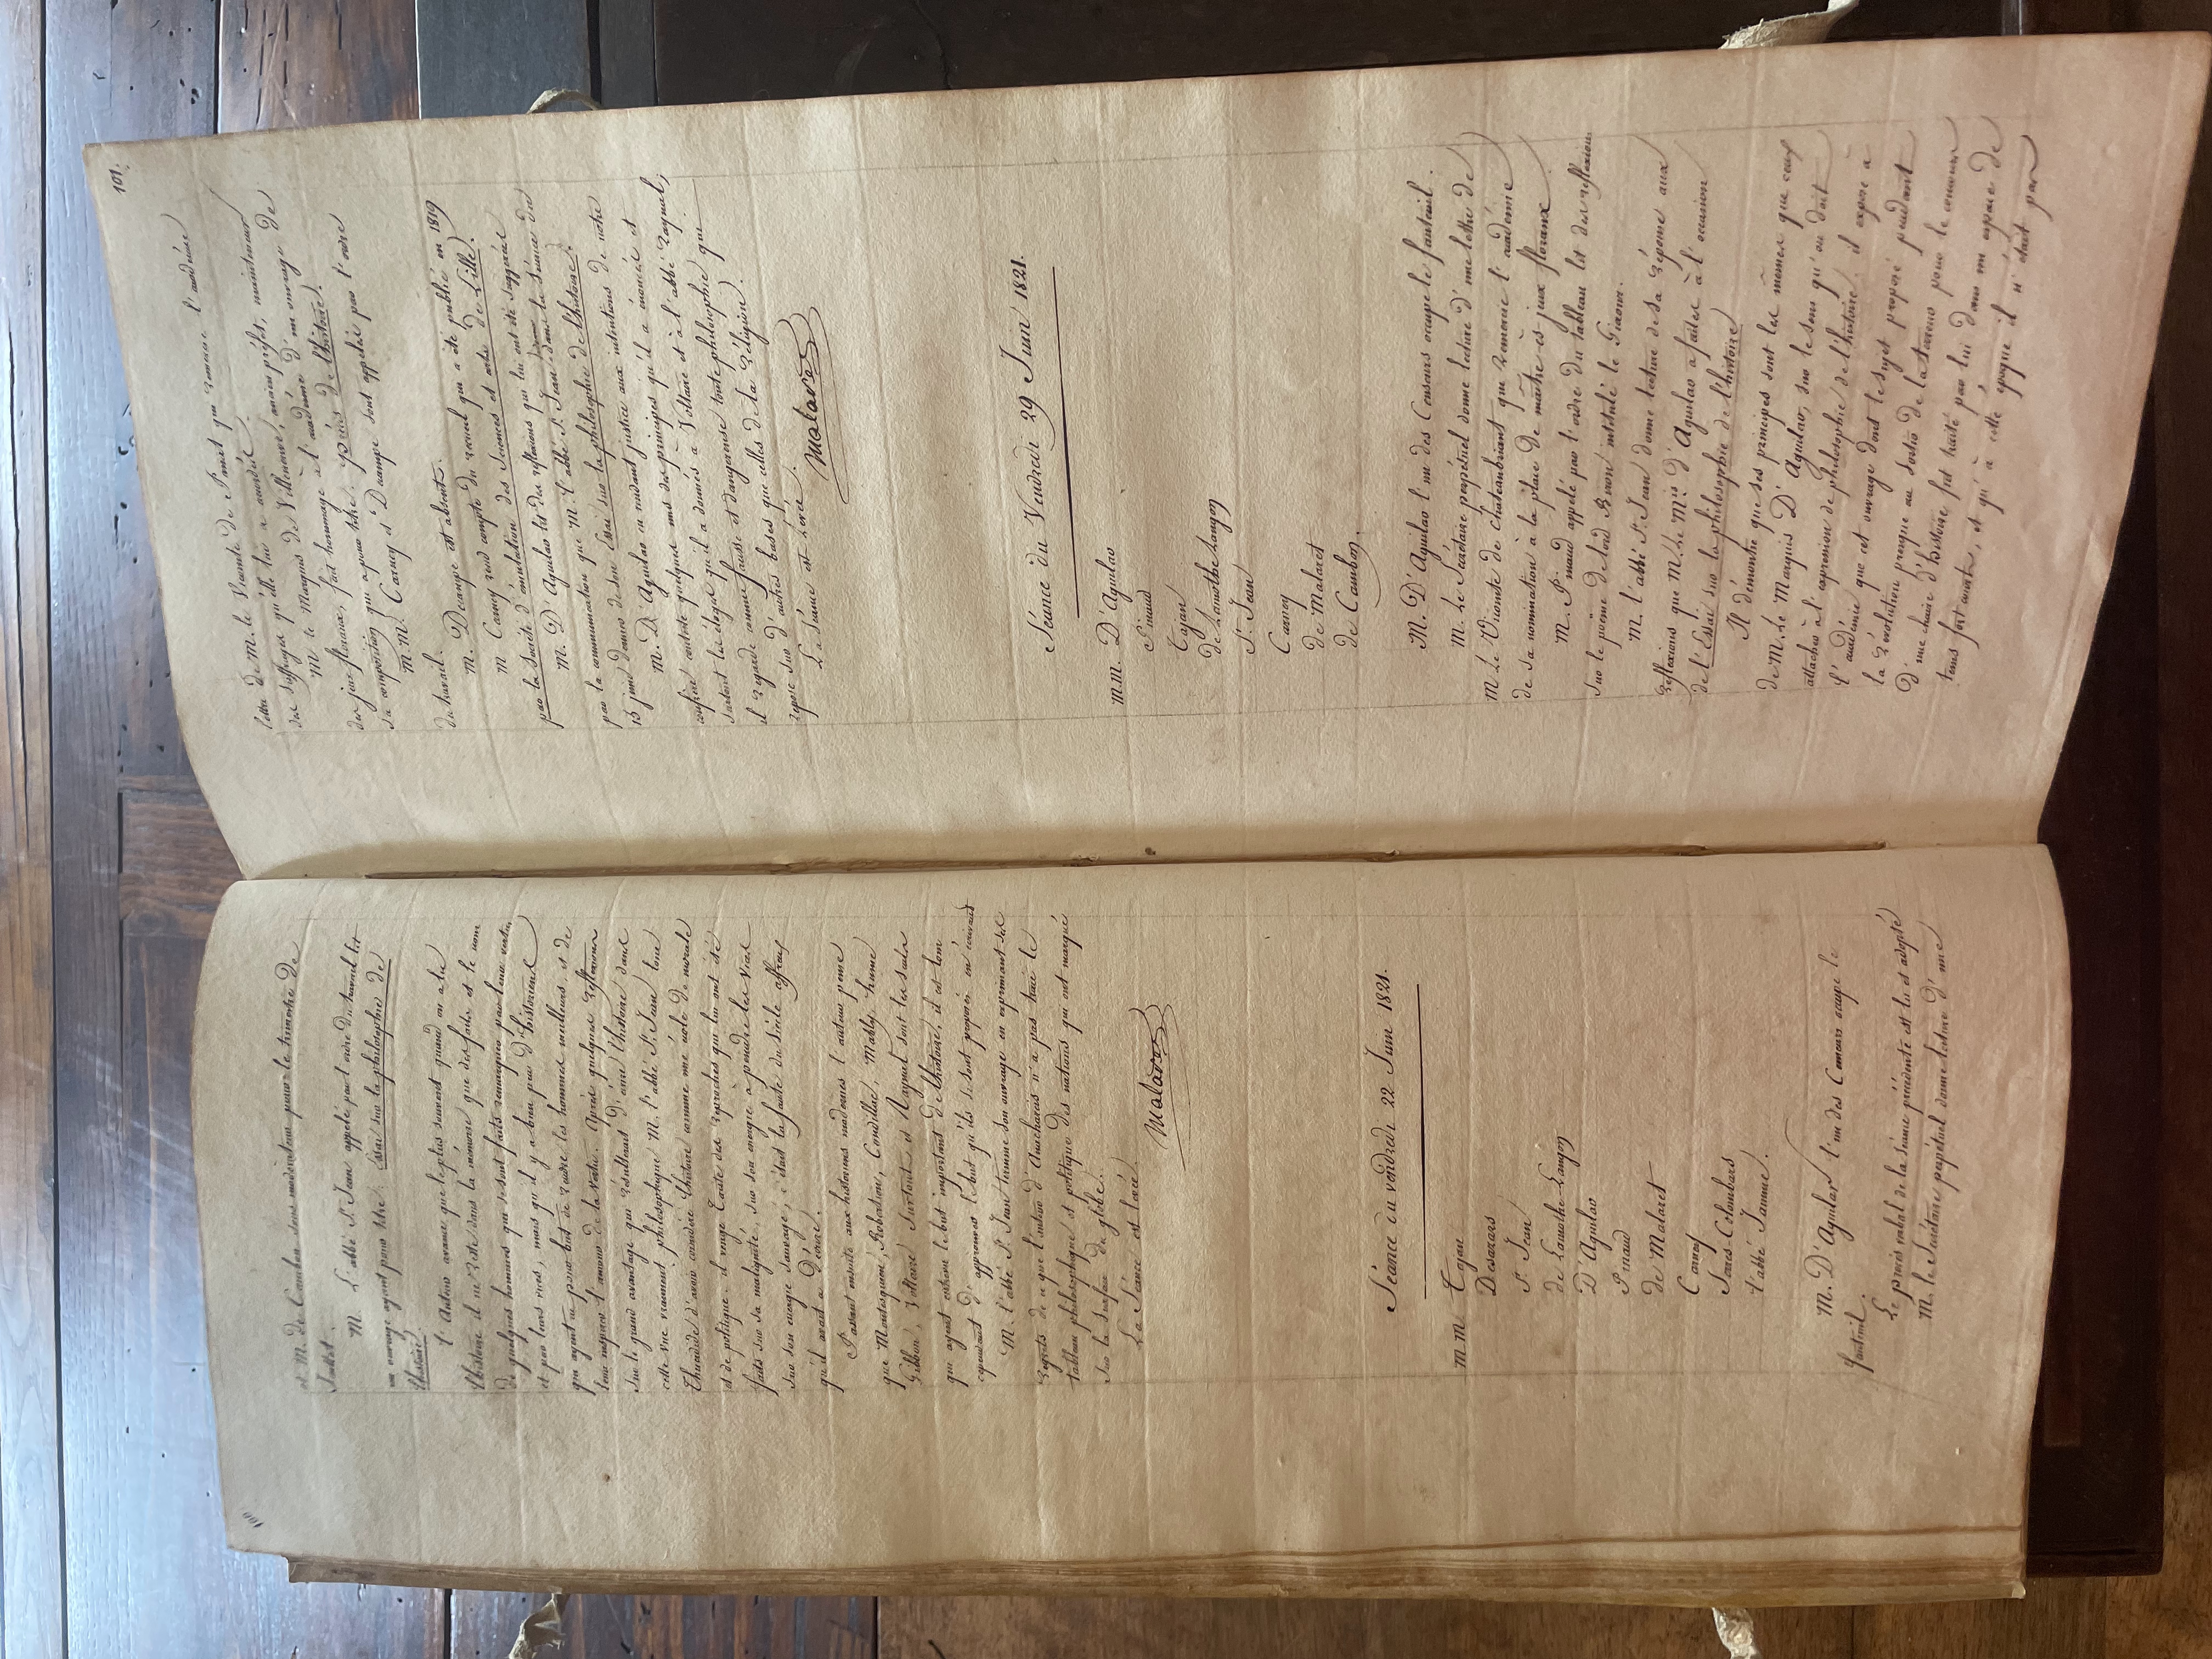 100
et M. de Cambon sous-modérateur pour le trimestre de
Juillet.
M. L'abbé St. Jean appellé pour l'ordre du travail lit
un ouvrage ayant pour titre : Essai sur la philosophie de
l'histoire.
L'Auteur avance que le plus souvent quand on a lu
l'histoire il ne reste dans la mémoire que des faits et le nom
de quelques hommes qui se sont faits remarquer par leurs vertus
et par leurs vices, mais qu'il y a bien peu d'historiens
qui ayent eu pour but de rendre les hommes meilleurs et de
leur inspirer l'amour de la vertu. Après quelques reflexions
sur le grand avantage qui résulterait d'écrire l'histoire dans
cette vue vraiment philosophique M. l'abbé St. Jean loue
Thucidide d'avoir considéré l'histoire comme une école de morale
et de politique. il venge Tacite des reproches qui lui ont été
faits sur sa malignité, sur son energie a peindre les vices
sur son energie sauvage, c'était la faute du siècle affreux
qu'il avait a décrire.
Passant ensuite aux historiens modernes l'auteur pense
que Montesquieu, Robertson, Condillac, Mably, hume
Gibbon, Voltaire surtout et Raynal sont les seuls
qui ayent entrevu le but important de l'histoire, il est loin
cependant d'approuver le but qu'ils se sont proposés en écrivant
M. l'abbé St. Jean termine son ouvrage en exprimant ses
regrets de ce que l'auteur d'Anacharsis n'a pas tracé le
tableau philosophique et politique des nations qui ont marqué
sur la surface du globe.
La Séance est levée.
Malaret
Séance du vendredi 22 Juin 1821.
M M Tajan
Desazars
St. Jean
de Lamothe-Langon
D'Aguilar
Pinaud
de Malaret
Carney
Serres-Colombars
l'abbé Jamme.
M. D'Aguilar l'un des Censeurs occupe le
fauteuil.
Le procès verbal de la séance précédente est lu et adopté
M. le Secrétaire perpétuel donne lecture d'une
101.
lettre de M. le Vicomte de Panat qui remercie l'académie
des suffrages qu'elle lui a accordés.
M. le Marquis de Villeneuve, ancien préfet, mainteneur
des jeux floraux, fait hommage à l'académie d'un ouvrage de
sa composition qui a pour titre : précis de l'histoire.
M. M. Carney et Decampe sont appellés par l'ordre
du travail.
M. Decampe est absent.
M Carney rend compte du recueil qui a été publié en 1819
par la Société d'émulation des Sciences et arts de Lille.
M. D'Aguilar lit des reflexions qui lui ont été suggérées
par la communication que M. l'abbé St. Jean donna dans la Séance du
15 juin dernier de son Essai sur la philosophie de l'histoire.
M. D'Aguilar en rendant justice aux intentions de notre
confrère combat quelques uns des principes qu'il a énoncés et
surtout les éloges qu'il a donnés à Voltaire et à l'abbé Raynal;
il regarde comme fausse et dangereuse toute philosophie qui
repose sur d'autres bases que celles de la Religion.
La Séance est levée.
Malaret
Séance du Vendredi 29 Juin 1821.
M.M. D'Aguilar
Pinaud
Tajan
de Lamothe langon
St. Jean
Carney
de Malaret
de Cambon.
M. D'Aguilar l'un des Censeurs occupe le fauteuil.
M. Le Secrétaire perpétuel donne lecture d'une lettre de
M. Le Vicomte de Chateaubriant qui remercie l'académie
de sa nomination à la place de maître ès jeux floraux.
M. Pinaud appelé par l'ordre du tableau lit des reflexions
sur le poëme de lord Biron intitulé le Giaour.
M. l'abbé St. Jean donne lecture de sa réponse aux
reflexions que M. Le Mis. d'Aguilar a faites à l'occasion
de l'Essai sur la philosophie de l'histoire
Il démontre que ses principes sont les mêmes que ceux
de M. Le Marquis D'Aguilar, sur le sens qu'on doit
attacher à l'expression de philosophie de l'histoire, il expose à
l'académie que cet ouvrage dont le sujet proposé pendant
la révolution presque au sortir de la terreur pour le concours
D'une chaire d'histoire, fut traité par lui dans un espace de
tems fort court, et qu'à cette époque il n'était pas